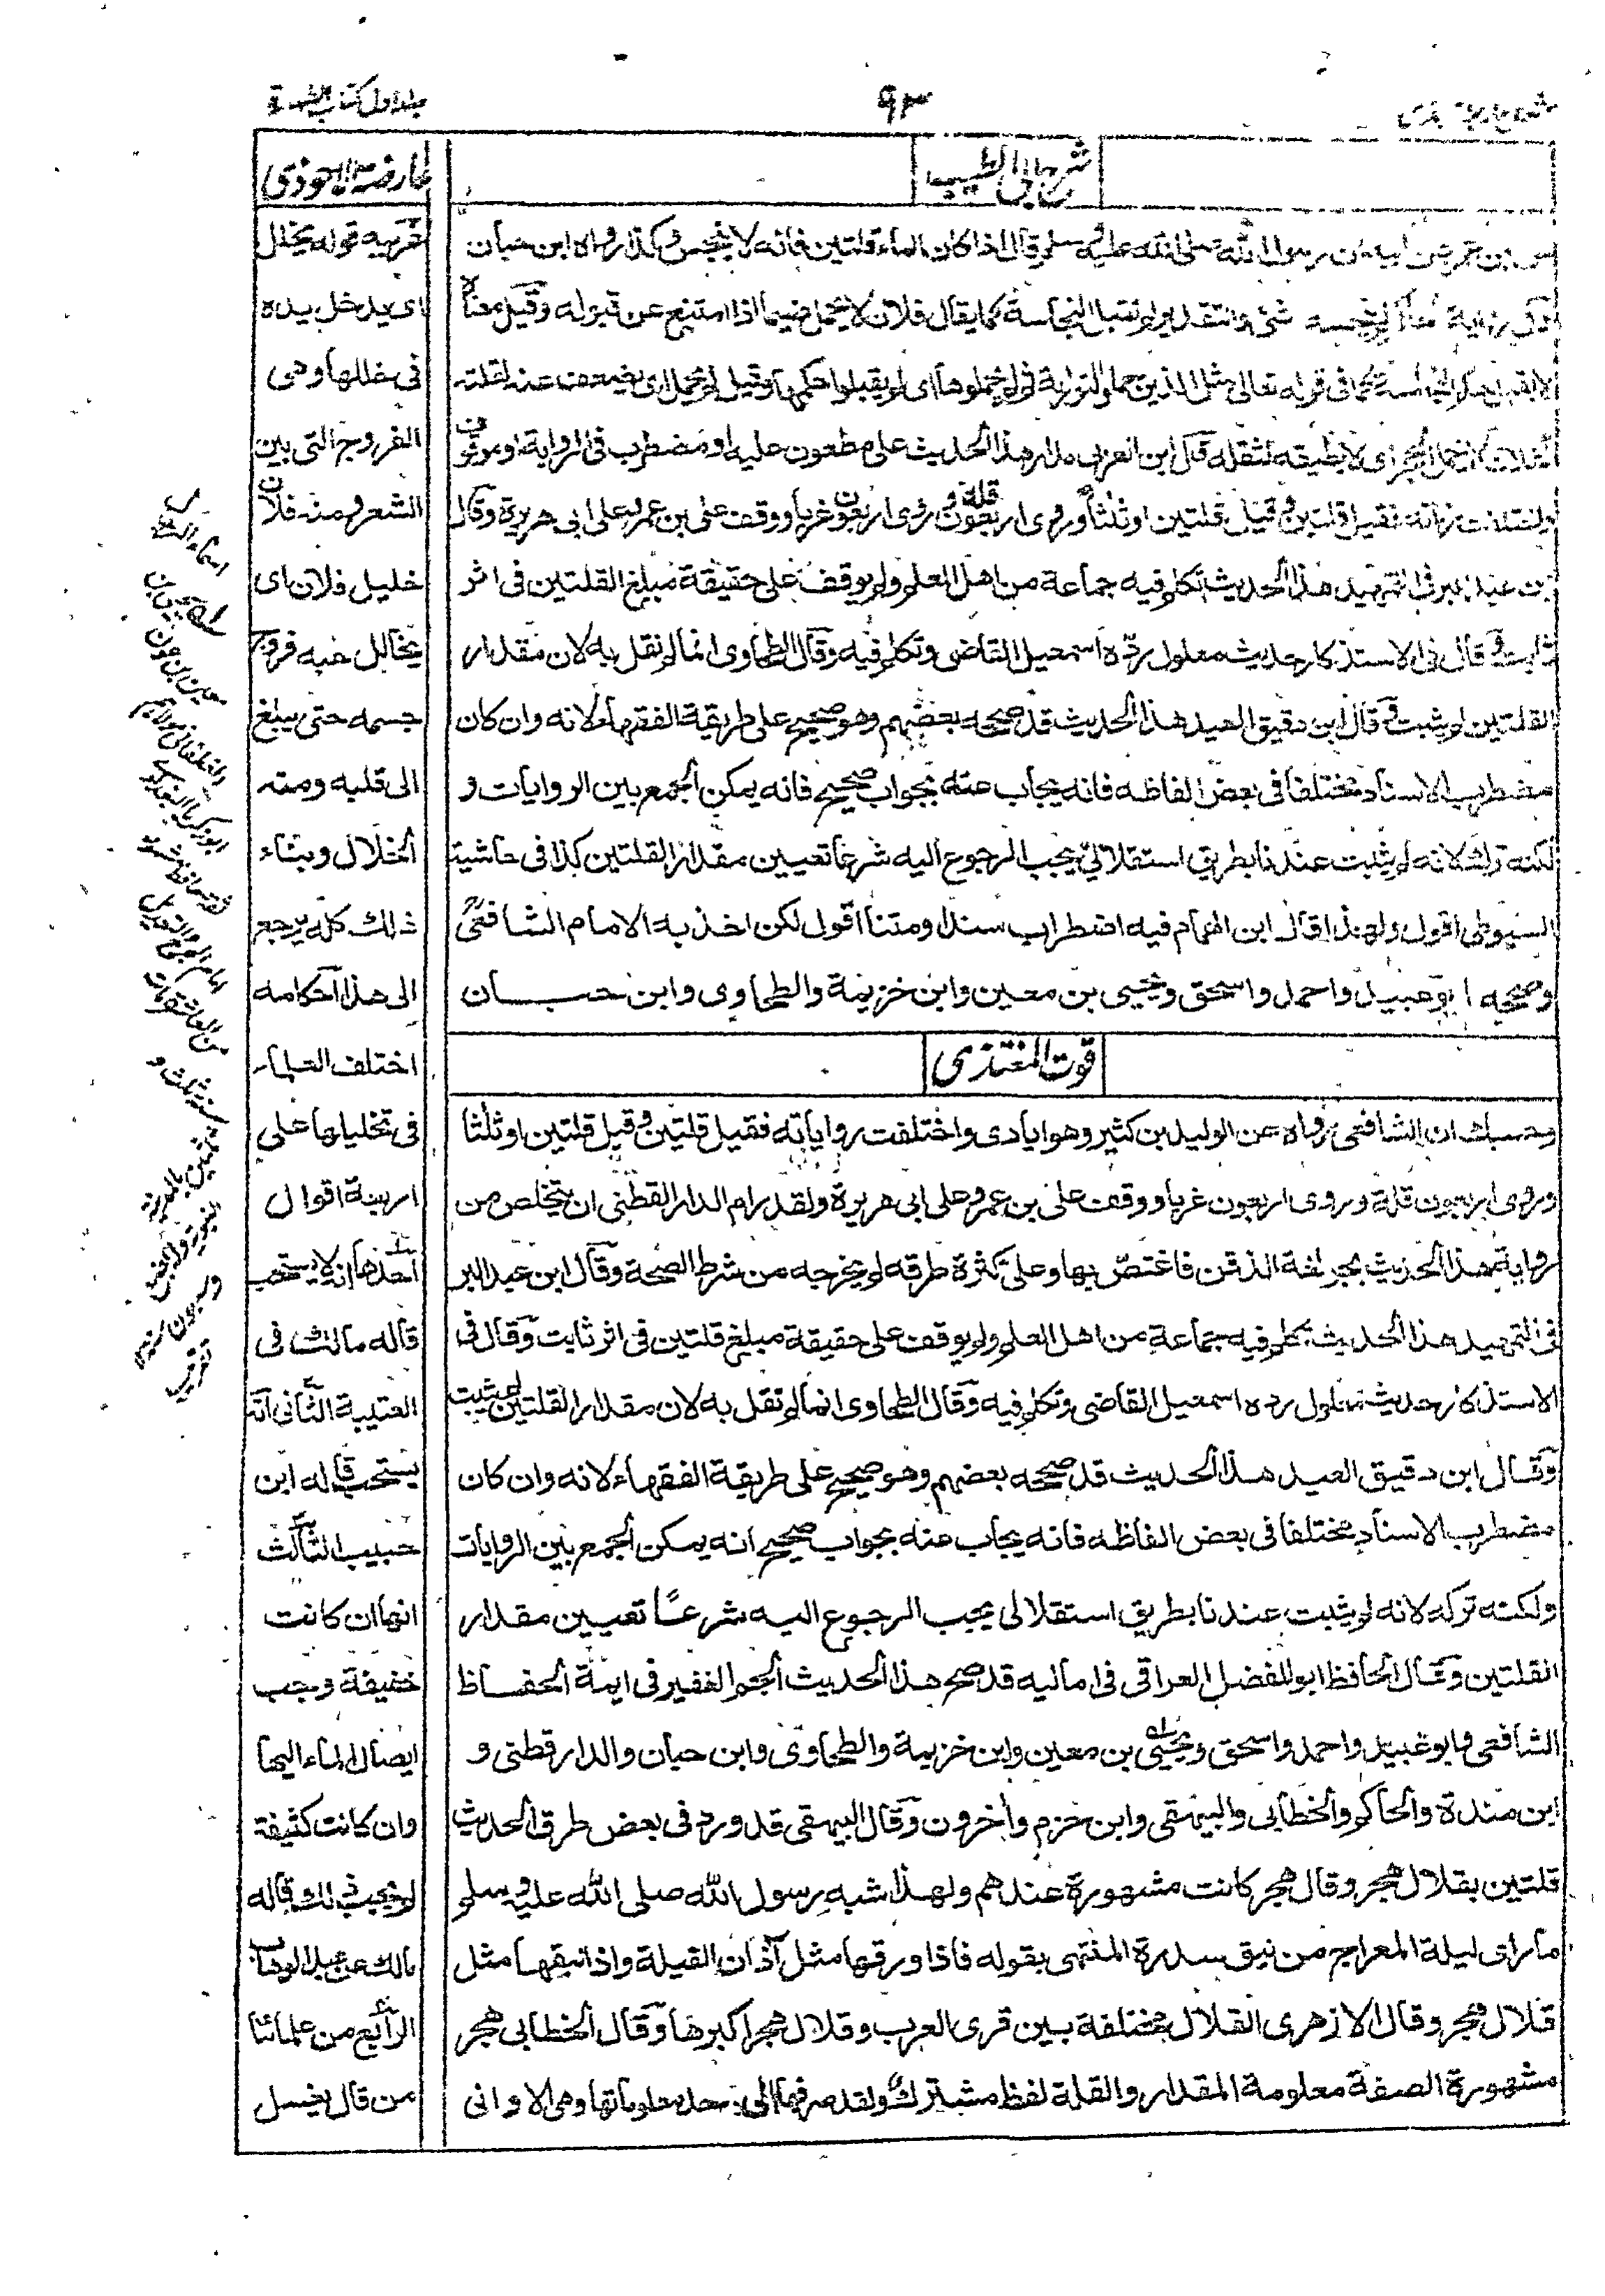 جلد اول كتاب الطهارة
٩٣
شرح ابى الطيب
ان رسول الله صلى الله عليه وسلم قال اذا كان الماء قلتين فانه لا ينجس وكذا رواه ابن حبان
شئ والتقدير لا يقبل النجاسة كما يقال فلان لا يحتمل ضيما اذا امتنع عن قبوله وقيل معناه
كما فى قوله تعالى مثل الذين حملوا التوراية ثم لم يحملوها اى لم يقبلوا حكمها وقيل لم يحمل اى يضعف عنه لقلته
لا يطيقه لثقله قال ابن العربى مدار هذا الحديث على مطعون عليه او مضطرب فى الرواية او موقوف
واختلفت رواياته فقيل قلتين وقيل قلتين او ثلثا وروى اربعون قلة وروى اربعون غربا ووقف على بن عمر وعلى ابى هريرة وقال
بن عبد البر فى التمهيد هذا الحديث تكلم فيه جماعة من اهل العلم ولم يوقف على حقيقة مبلغ القلتين فى اثر
ثابت وقال فى الاستذكار حديث معلول رده اسمعيل القاضى وتكلم فيه وقال الطحاوى انما لم نقل به لان مقدار
القلتين لم يثبت وقال ابن دقيق العيد هذا الحديث قد صححه بعضهم وهو صحيح على طريقة الفقهاء لانه وان كان
مضطرب الاسناد مختلفا فى بعض الفاظه فانه يجاب عنه بجواب صحيح فانه يمكن الجمع بين الروايات و
لكنه تركه لانه لم يثبت عندنا بطريق استقلالى يجب الرجوع اليه شرعا تعيين مقدار القلتين كذا فى حاشية
السيوطى اقول ولهذا قال ابن الهمام فيه اضطراب سندا ومتنا اقول لكن اخذ به الامام الشافعى
وصححه ابو عبيد واحمد واسحق ويحيى بن معين وابن خزيمة والطحاوى وابن حبان
قوت المغتذى
وحسبك ان الشافعى رواه عن الوليد بن كثير وهو ابادى واختلفت رواياته فقيل قلتين وقيل قلتين او ثلثا
وروى اربعون قلة وروى اربعون غربا ووقف على بن عمر وعلى ابى هريرة ولقد رام الدارقطنى ان يتخلص من
رواية هذا الحديث بجريعة الذقن فاغتص بها وعلى كثرة طرقه لم يخرجه من شرط الصحة وقال ابن عبد البر
فى التمهيد هذا الحديث تكلم فيه جماعة من اهل العلم ولم يوقف على حقيقة مبلغ قلتين فى اثر ثابت وقال فى
الاستذكار حديث معلول رده اسمعيل القاضى وتكلم فيه وقال الطحاوى انما لم نقل به لان مقدار القلتين لم يثبت
وقال ابن دقيق العيد هذا الحديث قد صححه بعضهم وهو صحيح على طريقة الفقهاء لانه وان كان
مضطرب الاسناد مختلفا فى بعض الفاظه فانه يجاب عنه بجواب صحيح انه يمكن الجمع بين الروايات
ولكنه تركه لانه لم يثبت عندنا بطريق استقلالى يجب الرجوع اليه شرعا تعيين مقدار
القلتين وقال الحافظ ابو الفضل العراقى فى اماليه قد صحح هذا الحديث الجم الغفير فى ايمة الحفاظ
الشافعى وابو عبيد واحمد واسحق ويحيى بن معين وابن خزيمة والطحاوى وابن حبان والدارقطنى و
ابن مندة والحاكم والخطابى والبيهقى وابن حزم وأخرون وقال البيهقى قد ورد فى بعض طرق الحديث
قلتين بقلال هجر وقال هجر كانت مشهورة عندهم ولهذا شبه رسول الله صلى الله عليه وسلم
ما راى ليلة المعراج من نبق سدرة المنتهى بقوله فاذا ورقها مثل آذان الفيلة واذا نبقها مثل
قلال هجر وقال الازهرى القلال مختلفة بين قرى العرب وقلال هجر اكبرها وقال الخطابى هجر
مشهورة الصفة معلومة المقدار والقلة لفظ مشترك وبعد صرفها الى احد معلوماتها وهى الاوانى
عارضة الاحوذى
غريبه قوله يخلل
اى يدخل يده
فى خللها وهى
الفروج التى بين
الشعر ومنه فلان
خليل فلان اى
يخالل حبه فروج
جسمه حتى يبلغ
الى قلبه ومنه
الخلال وبناء
ذلك كله يرجع
الى هذا احكامه
اختلف العلماء
فى تخليلها على
اربعة اقوال
احدها انه لا يستحب
قاله مالك فى
العتبية الثانى انه
يستحب قاله ابن
حبيب الثالث
انها ان كانت
خفيفة وجب
ايصال الماء اليها
وان كانت كثيفة
لم يجب ذلك قاله
مالك عن عبد الوهاب
الرابع من علمائنا
من قال يغسل